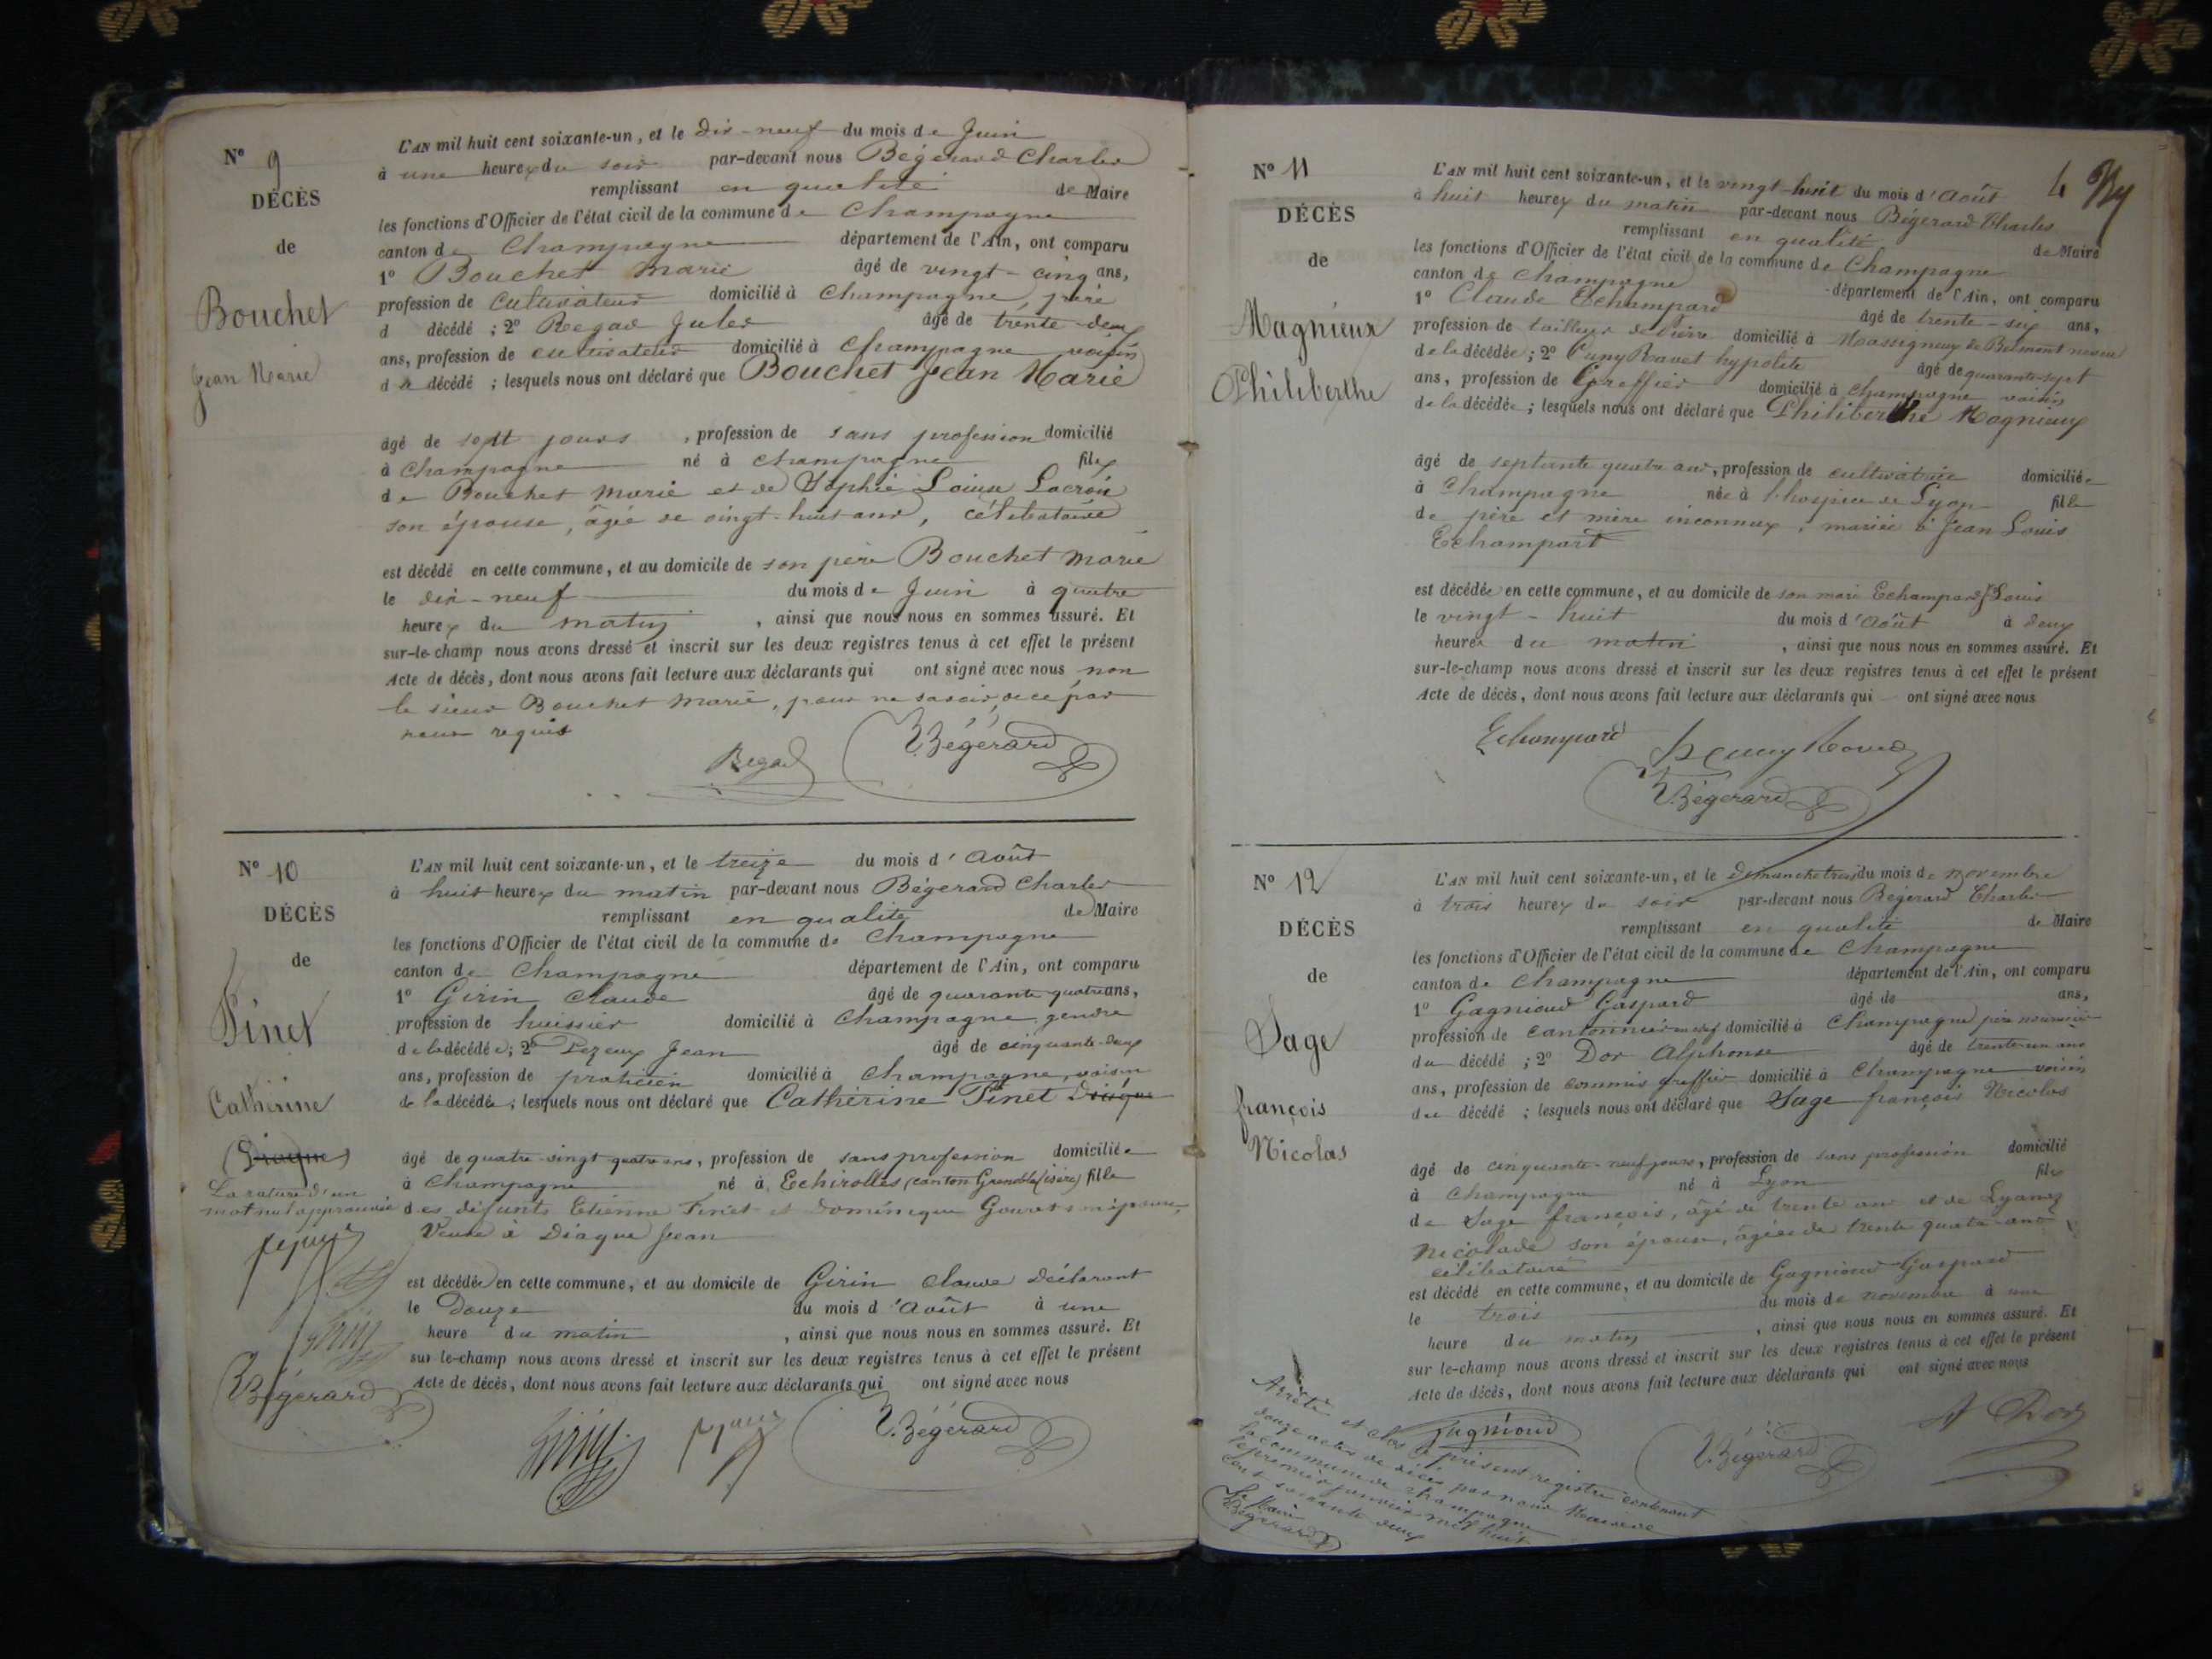 N° 9
DÉCÈS
de
Bouchet
Jean Marie
L'AN mil huit cent soixante-un, et le dix-neuf du mois de Juin
à une heure du soir par-devant nous Bégerard Charles
remplissant en qualité de Maire
les fonctions d'Officier de l'état civil de la commune de Champagne
canton de Champagne département de l'Ain, ont comparu
1° Bouchet Marie âgé de vingt-cinq ans,
profession de cultivateur domicilié à Champagne, père
d décédé ; 2° Regad Jules âgé de trente-deux
ans, profession de cultivateur domicilié à Champagne voisin
du décédé ; lesquels nous ont déclaré que Bouchet Jean Marie
âgé de sept jours , profession de sans profession domicilié
à Champagne né à Champagne fils
de Bouchet Marie et de Sophie Louise
son épouse, âgée de vingt-huit ans, célibataire
est décédé en cette commune, et au domicile de son père Bouchet Marie
le dix-neuf du mois de Juin à quatre
heures du matin , ainsi que nous nous en sommes assuré. Et
sur-le-champ nous avons dressé et inscrit sur les deux registres tenus à cet effet le présent
Acte de décès, dont nous avons fait lecture aux déclarants qui ont signé avec nous non
le sieur Bouchet Marie, pour ne savoir, de ce par
nous requis
Regad Bégerard
N° 10
DÉCÈS
de
Pinet
Catherine
Diaque
La rature d'un
mot nul approuvée
Bégerard
L'AN mil huit cent soixante-un, et le treize du mois d'Août
à huit heures du matin par-devant nous Bégerard Charles
remplissant en qualité de Maire
les fonctions d'Officier de l'état civil de la commune de Champagne
canton de Champagne département de l'Ain, ont comparu
1° Girin Claude âgé de quarante quatre ans,
profession de huissier domicilié à Champagne gendre
de la décédée; 2° Pezeux Jean âgé de cinquante-deux
ans, profession de praticien domicilié à Champagne, voisin
de la décédée ; lesquels nous ont déclaré que Catherine Pinet Diaque
âgé de quatre-vingt quatre ans, profession de sans profession domiciliée
à Champagne né à Echirolles (canton Grenoble (isère) fille
des défunts Etienne Pinet et Dominique Gouret son épouse,
Veuve à Diaque Jean
est décédée en cette commune, et au domicile de Girin Claude Déclarant
le Douze du mois d'Août à une
heure du matin , ainsi que nous nous en sommes assuré. Et
sur-le-champ nous avons dressé et inscrit sur les deux registres tenus à cet effet le présent
Acte de décès, dont nous avons fait lecture aux déclarants qui ont signé avec nous
Girin Bégerard
N° 11
DÉCÈS
de
Magnieux
Philiberthe
4
L'AN mil huit cent soixante-un, et le vingt-huit du mois d'Août
à huit heures du matin par-devant nous Bégerard Charles
remplissant en qualité de Maire
les fonctions d'Officier de l'état civil de la commune de Champagne
canton de Champagne département de l'Ain, ont comparu
1° Claude Echampard âgé de trente-six ans,
profession de tailleur de pierre domicilié à Massignieu de Belmont neveu
de la décédée ; 2° Cuny Ravet hypolite âgé de quarante-sept
ans, profession de Greffier domicilié à Champagne voisin
de la décédée ; lesquels nous ont déclaré que Philiberthe Magnieux
âgé de septante quatre ans, profession de cultivatrice domiciliée
à Champagne née à l'hospice de Lyon fille
de père et mère inconnux, mariée à Jean Louis
Echampart
est décédée en cette commune, et au domicile de son mari Echampard Louis
le vingt-huit du mois d'Août à deux
heures du matin , ainsi que nous nous en sommes assuré. Et
sur-le-champ nous avons dressé et inscrit sur les deux registres tenus à cet effet le présent
Acte de décès, dont nous avons fait lecture aux déclarants qui ont signé avec nous
Echampard
Bégerard
N° 12
DÉCÈS
de
Sage
françois
Nicolas
L'AN mil huit cent soixante-un, et le Dimanche trois du mois de novembre
à trois heures du soir par-devant nous Bégerard Charles
remplissant en qualité de Maire
les fonctions d'Officier de l'état civil de la commune de Champagne
canton de Champagne département de l'Ain, ont comparu
1° Gagnioud Gaspard âgé de ans,
profession de cantonnier chef domicilié à Champagne père nourricier
du décédé ; 2° Dor Alphonse âgé de trente-un ans
ans, profession de commis greffier domicilié à Champagne voisin
du décédé ; lesquels nous ont déclaré que Sage françois Nicolas
âgé de cinquante-neuf jours, profession de sans profession domicilié
à Champagne né à Lyon fils
de Sage françois, âgé de trente ans et de
son épouse, âgée de trente quatre ans
célibataire
est décédé en cette commune, et au domicile de Gagnioud Gaspard
le trois du mois de novembre à une
heure du matin , ainsi que nous nous en sommes assuré. Et
sur-le-champ nous avons dressé et inscrit sur les deux registres tenus à cet effet le présent
Acte de décès, dont nous avons fait lecture aux déclarants qui ont signé avec nous
Gagnioud Bégerard A Dor
Arrêté et clos le présent registre contenant
douze actes de décès par nous Maire de
la commune de Champagne
le premier janvier mil huit
cent soixante deux
Le Maire
Bégerard